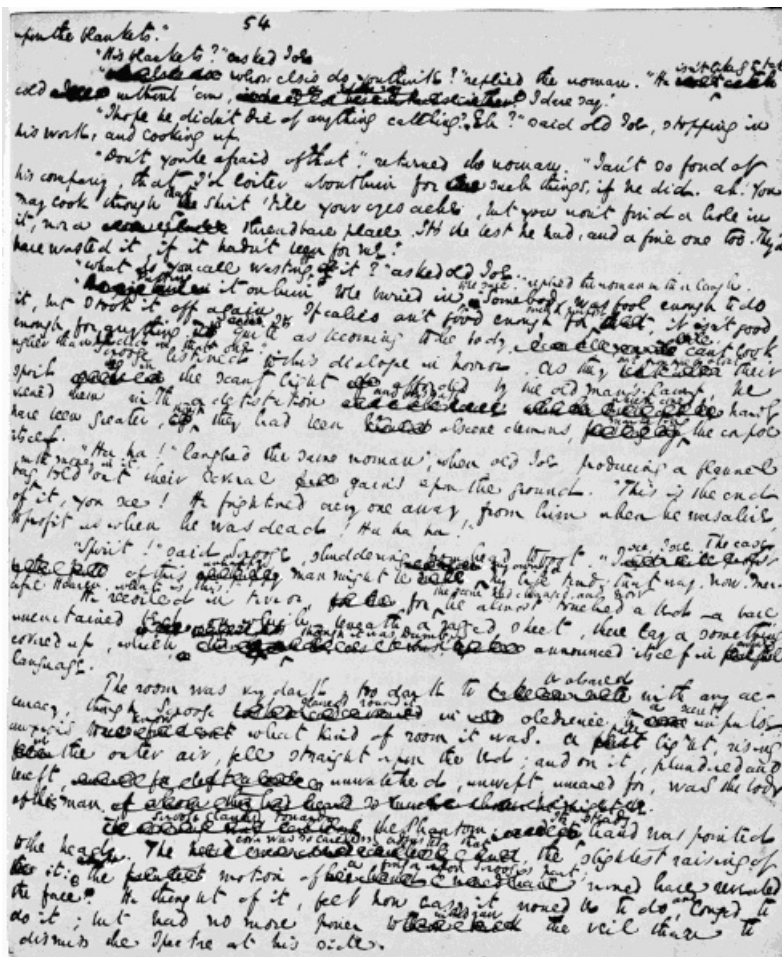 54
upon the blankets."
"His blankets?" asked Joe.
whose else's do you think?" replied the woman. "He isn't likely to take
cold without 'em, I dare say."
"I hope he didn't die of anything catching? Eh?" said old Joe, stopping in
his work, and looking up.
"Don't you be afraid of that," returned the woman. "I an't so fond of
his company, that I'd loiter about him for such things, if he did. Ah! You
may look through that shirt 'till your eyes ache; but you won't find a hole in
it, nor a threadbare place. It's the best he had, and a fine one too. They'd
have wasted it, if it hadn't been for me."
"What do you call wasting of it?" asked old Joe.
"Putting it on him to be buried in to be sure," replied the woman with a laugh.
Somebody was fool enough to do
it, but I took it off again. If calico an't good enough for such a purpose, it isn't good
enough for anything. It's quite as becoming to the body. He can't look
uglier than he did in that one."
Scrooge listened to this dialogue in horror. As they sat grouped about their
spoil in the scanty light afforded by the old man's lamp, he
viewed them with a detestation and disgust which could hardly
have been greater, though they had been obscene demons, marketing the corpse
itself.
"Ha ha!" laughed the same woman, when old Joe producing a flannel
bag with money in it told out their several gains upon the ground. "This is the end
of it, you see! He frightened every one away from him when he was alive
to profit us when he was dead! Ha ha ha!"
"Spirit!" said Scrooge, shuddering from head to foot. "I see, I see. The case
of this unhappy man might be my own. My life tends that way, now. Mer-
ciful Heaven, what is this!"
He recoiled in terror, for the scene had changed, and now he almost touched a bed—a bare
uncurtained bed: on which, beneath a ragged sheet, there lay a something
covered up, which though it was dumb announced itself in awful
language.
The room was very dark, too dark to be observed with any ac-
curacy, though Scrooge glanced round it in obedience to a secret impulse,
anxious to know what kind of room it was. A pale light, rising
in the outer air, fell straight upon the bed; and on it, plundered and
bereft, unwatched, unwept, uncared for, was the body
of this man.
Scrooge glanced towards the Phantom. Its steady hand was pointed
to the head. The cover was so carelessly adjusted that the slightest raising of
it: the motion of a finger upon Scrooge's part, would have revealed
the face. He thought of it, felt how easy it would be to do, and longed to
do it; but had no more power to withdraw the veil than to
dismiss the Spectre at his side.